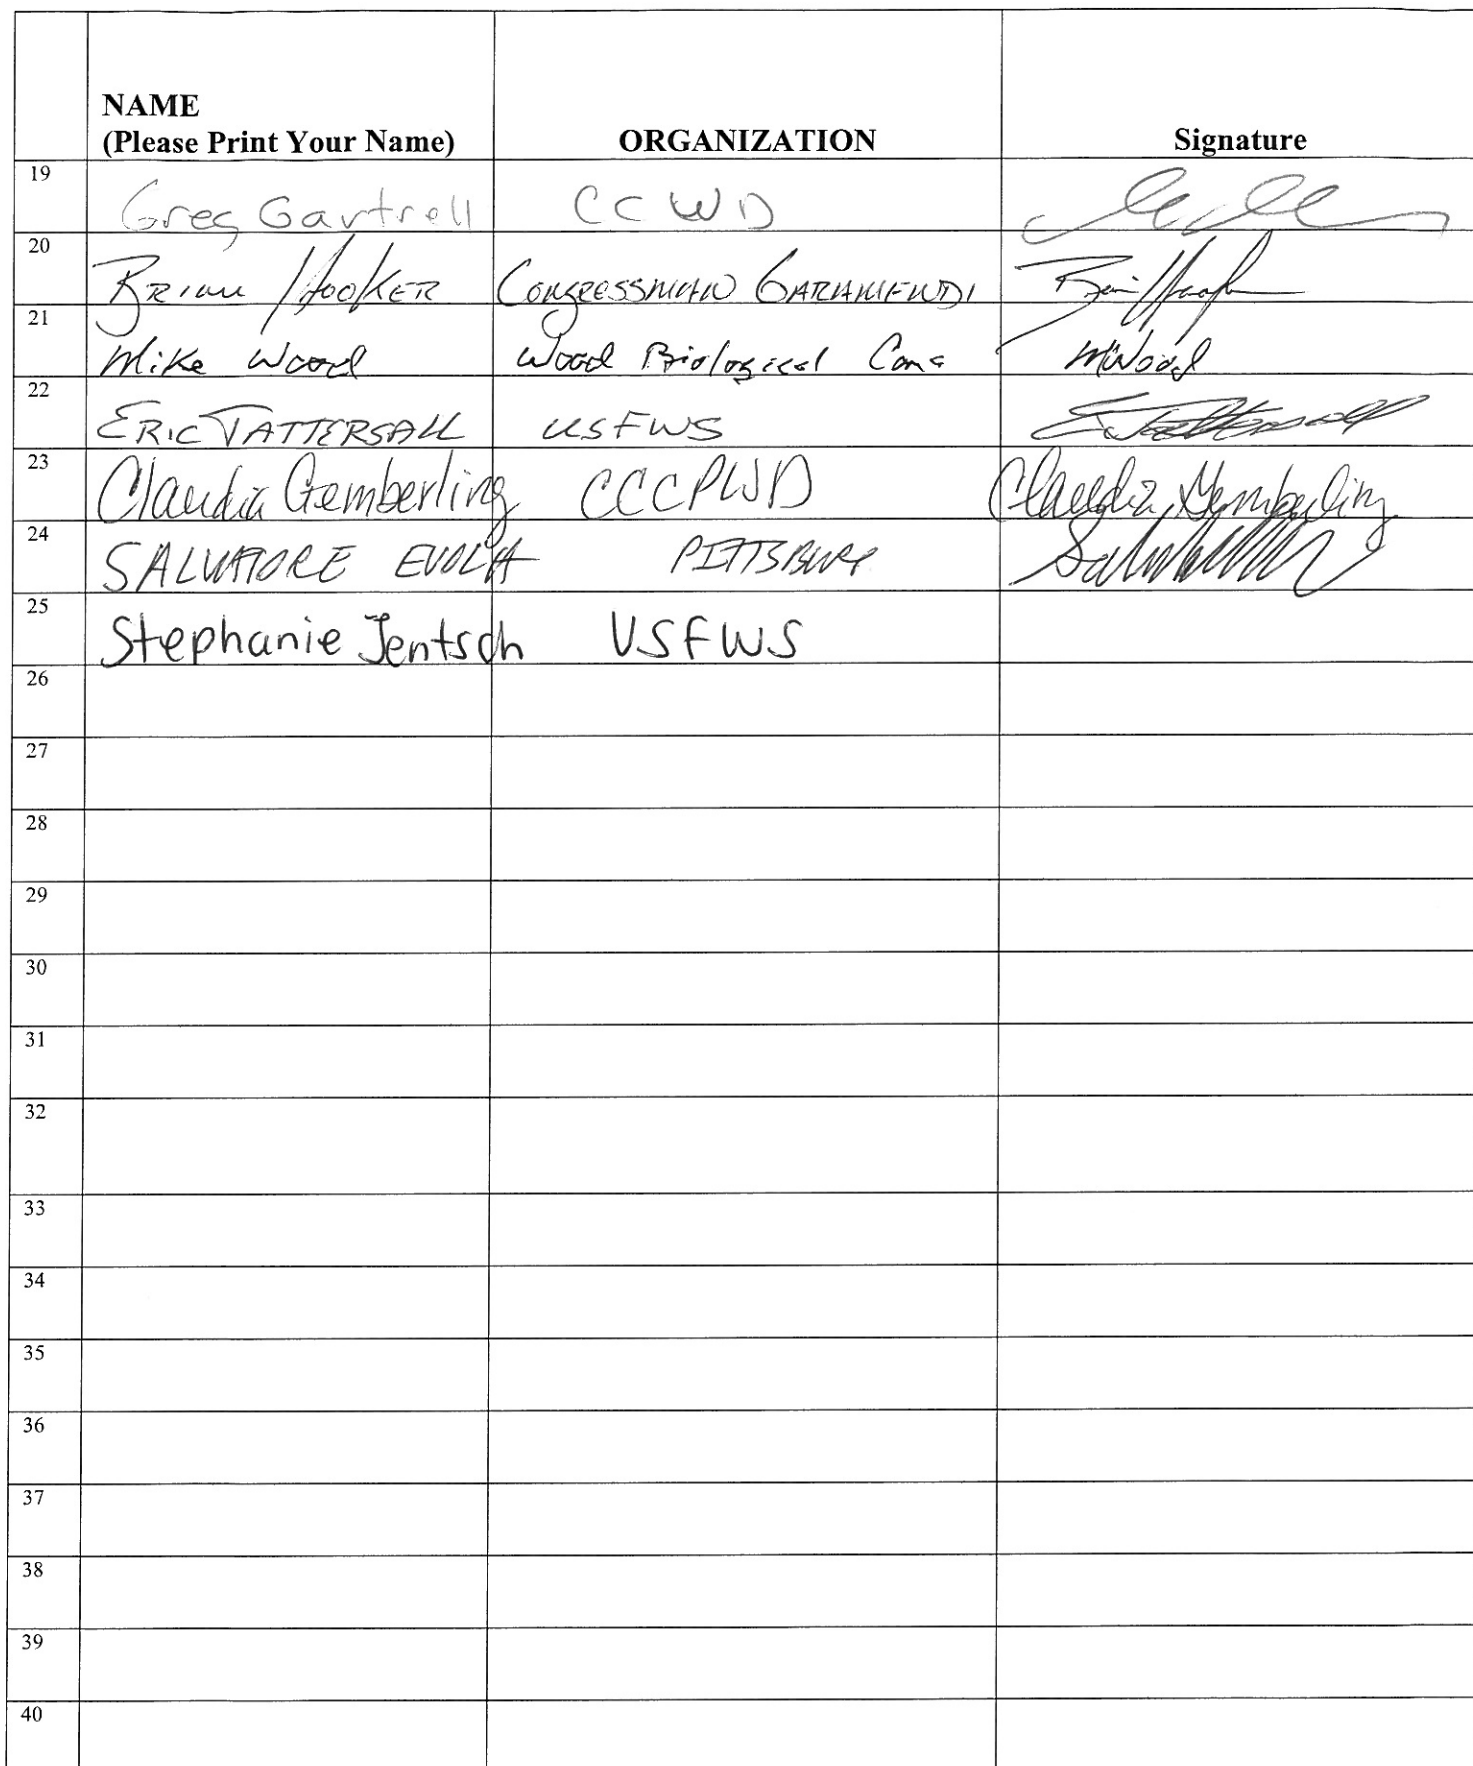 NAME
(Please Print Your Name) ORGANIZATION Signature
19 Greg Gartrell CCWD
20 BRIAN HOOKER CONGRESSMAN GARAMENDI
21 Mike Wood Wood Biological Cons MWood
22 ERIC TATTERSALL USFWS E Tattersall
23 Claudia Gemberling CCCPWD Claudia Gemberling
24 SALVATORE EVOLA PITTSBURG
25 Stephanie Jentsch USFWS
26
27
28
29
30
31
32
33
34
35
36
37
38
39
40